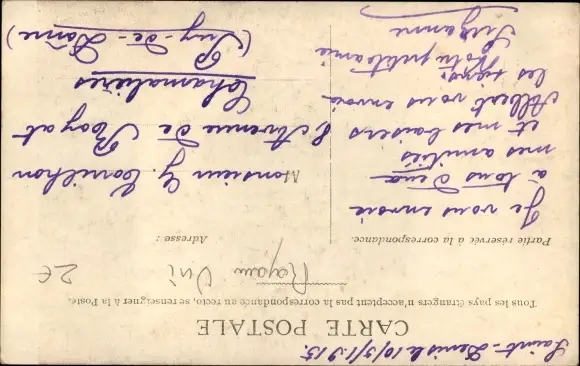 Saint-Denis le 10/5/1915.
CARTE POSTALE
Tous les pays étrangers n'acceptent pas la correspondance au recto, se renseigner à la Poste.
2€
Partie réservée à la correspondance.
Adresse :
Je vous envoie
à tous deux
mes amitiés
et mes baisers
Albert vous envoie
les siens.
Votre petite amie
Suzanne
Monsieur G. Cornilhon
8, Avenue de Royat
Chamalières
(Puy-de-Dôme)